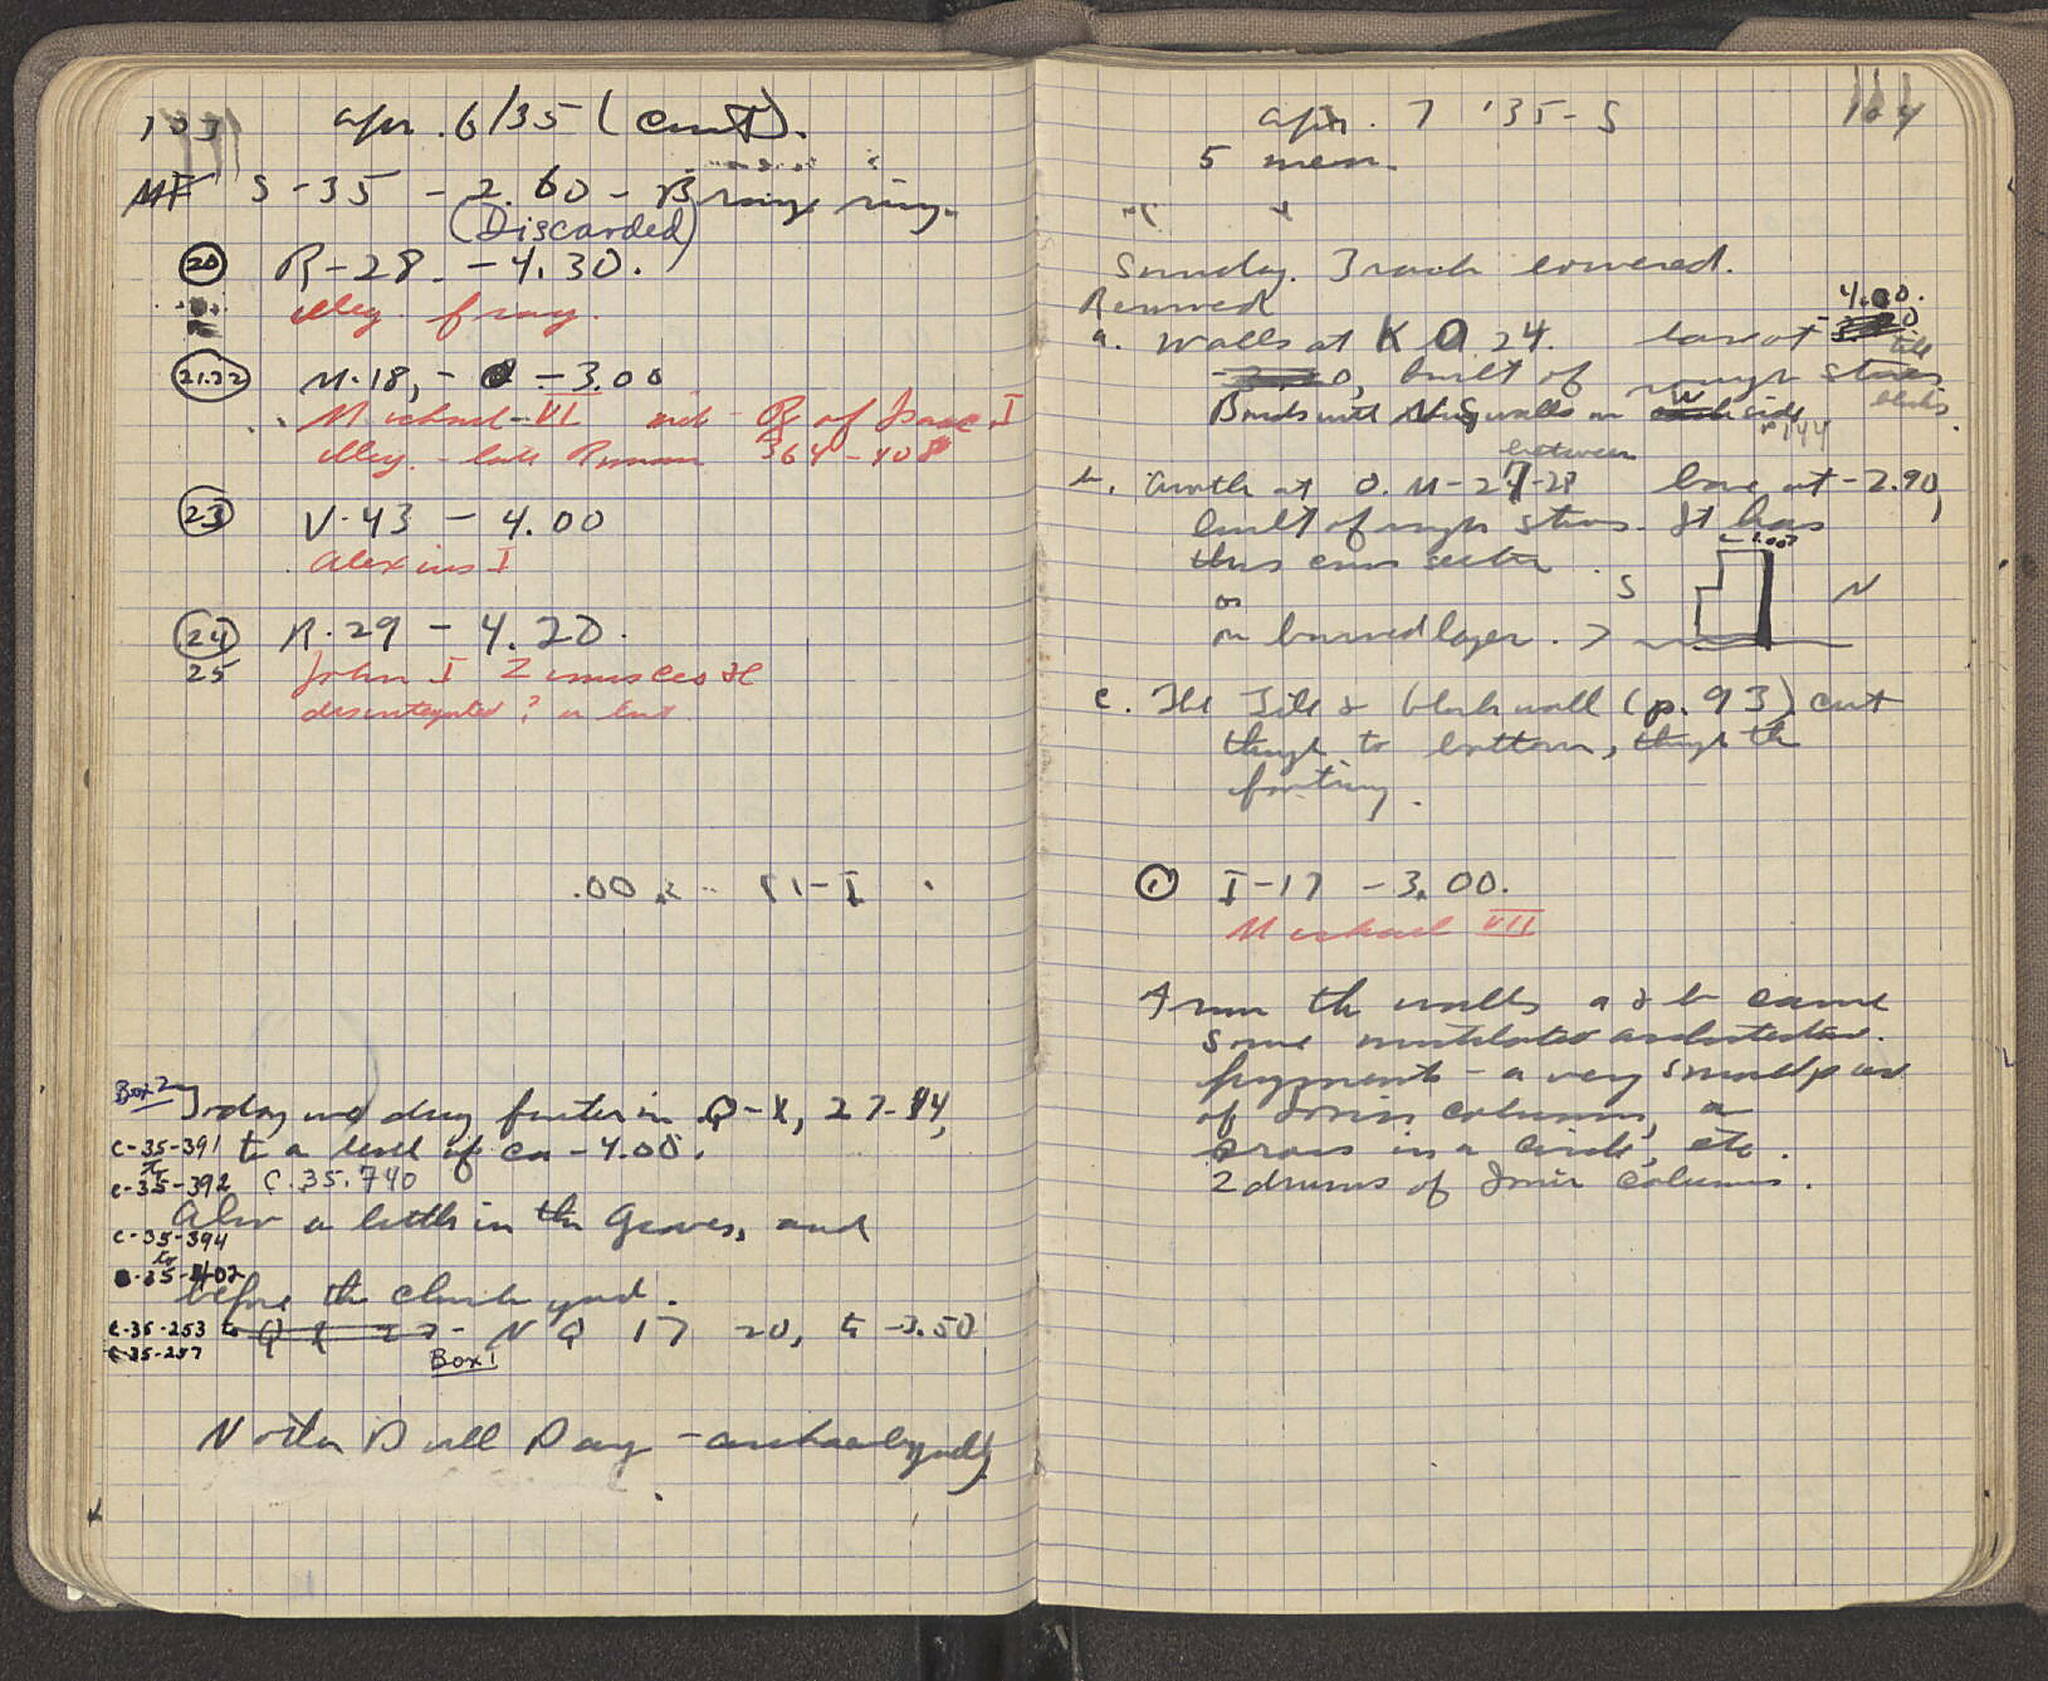 103
Apr. 6/35 (Cont).
MF S-35 - 2.60 - Bronze ring.
(Discarded)
20 R-28. - 4.30.
illeg. frag.
21.22 M.18, - - 3.00
Michael VI and R of Isaac I
illeg. - late Roman 364-408
23 V-43 - 4.00
Alexius I
24 R.29 - 4.20.
25 John I Zimisces
disintegrated?
Box 2 Today we dug further in Q-X, 27-44,
C-35-391 to a level of ca -4.00.
to
C-35-392 C.35.740
Also a little in the Graves, and
C-35-394
to
C-35-402
before the church yard.
C-35-253 to Q X 27- N Q 17 20, to -3.50
C-35-257
Box 1
Notta Dull Day - archaeologically
104
Apr. 7 '35 - S
5 men.
Sunday. Track lowered.
Removed
4.00.
a. Walls at K O 24. base at
built of rough stones
tile
blocks
Bonds with walls on W side p. 144
between
b. Another at O. M-27-28 base at -2.90,
built of rough stones. It has
this cross section.
S N
on
on burned layer. >
c. The Tile & block wall (p. 93) cut
though to bottom, though the
footing.
1 I-17 - 3.00.
Michael VII
From the walls a & b came
some mutilated architectur.
fragments - a very small piece
of Ionic column, a
cross in a circle, etc.
2 drums of Ionic columns.